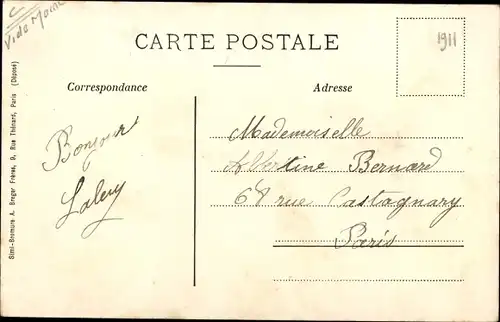 CARTE POSTALE
1911
Correspondance
Adresse
Bonjour
Mademoiselle
Albertine Bernard
68 rue Castagnary
Paris
Simi-Bromure A. Breger Frères, 9, Rue Thénard, Paris (Déposé)